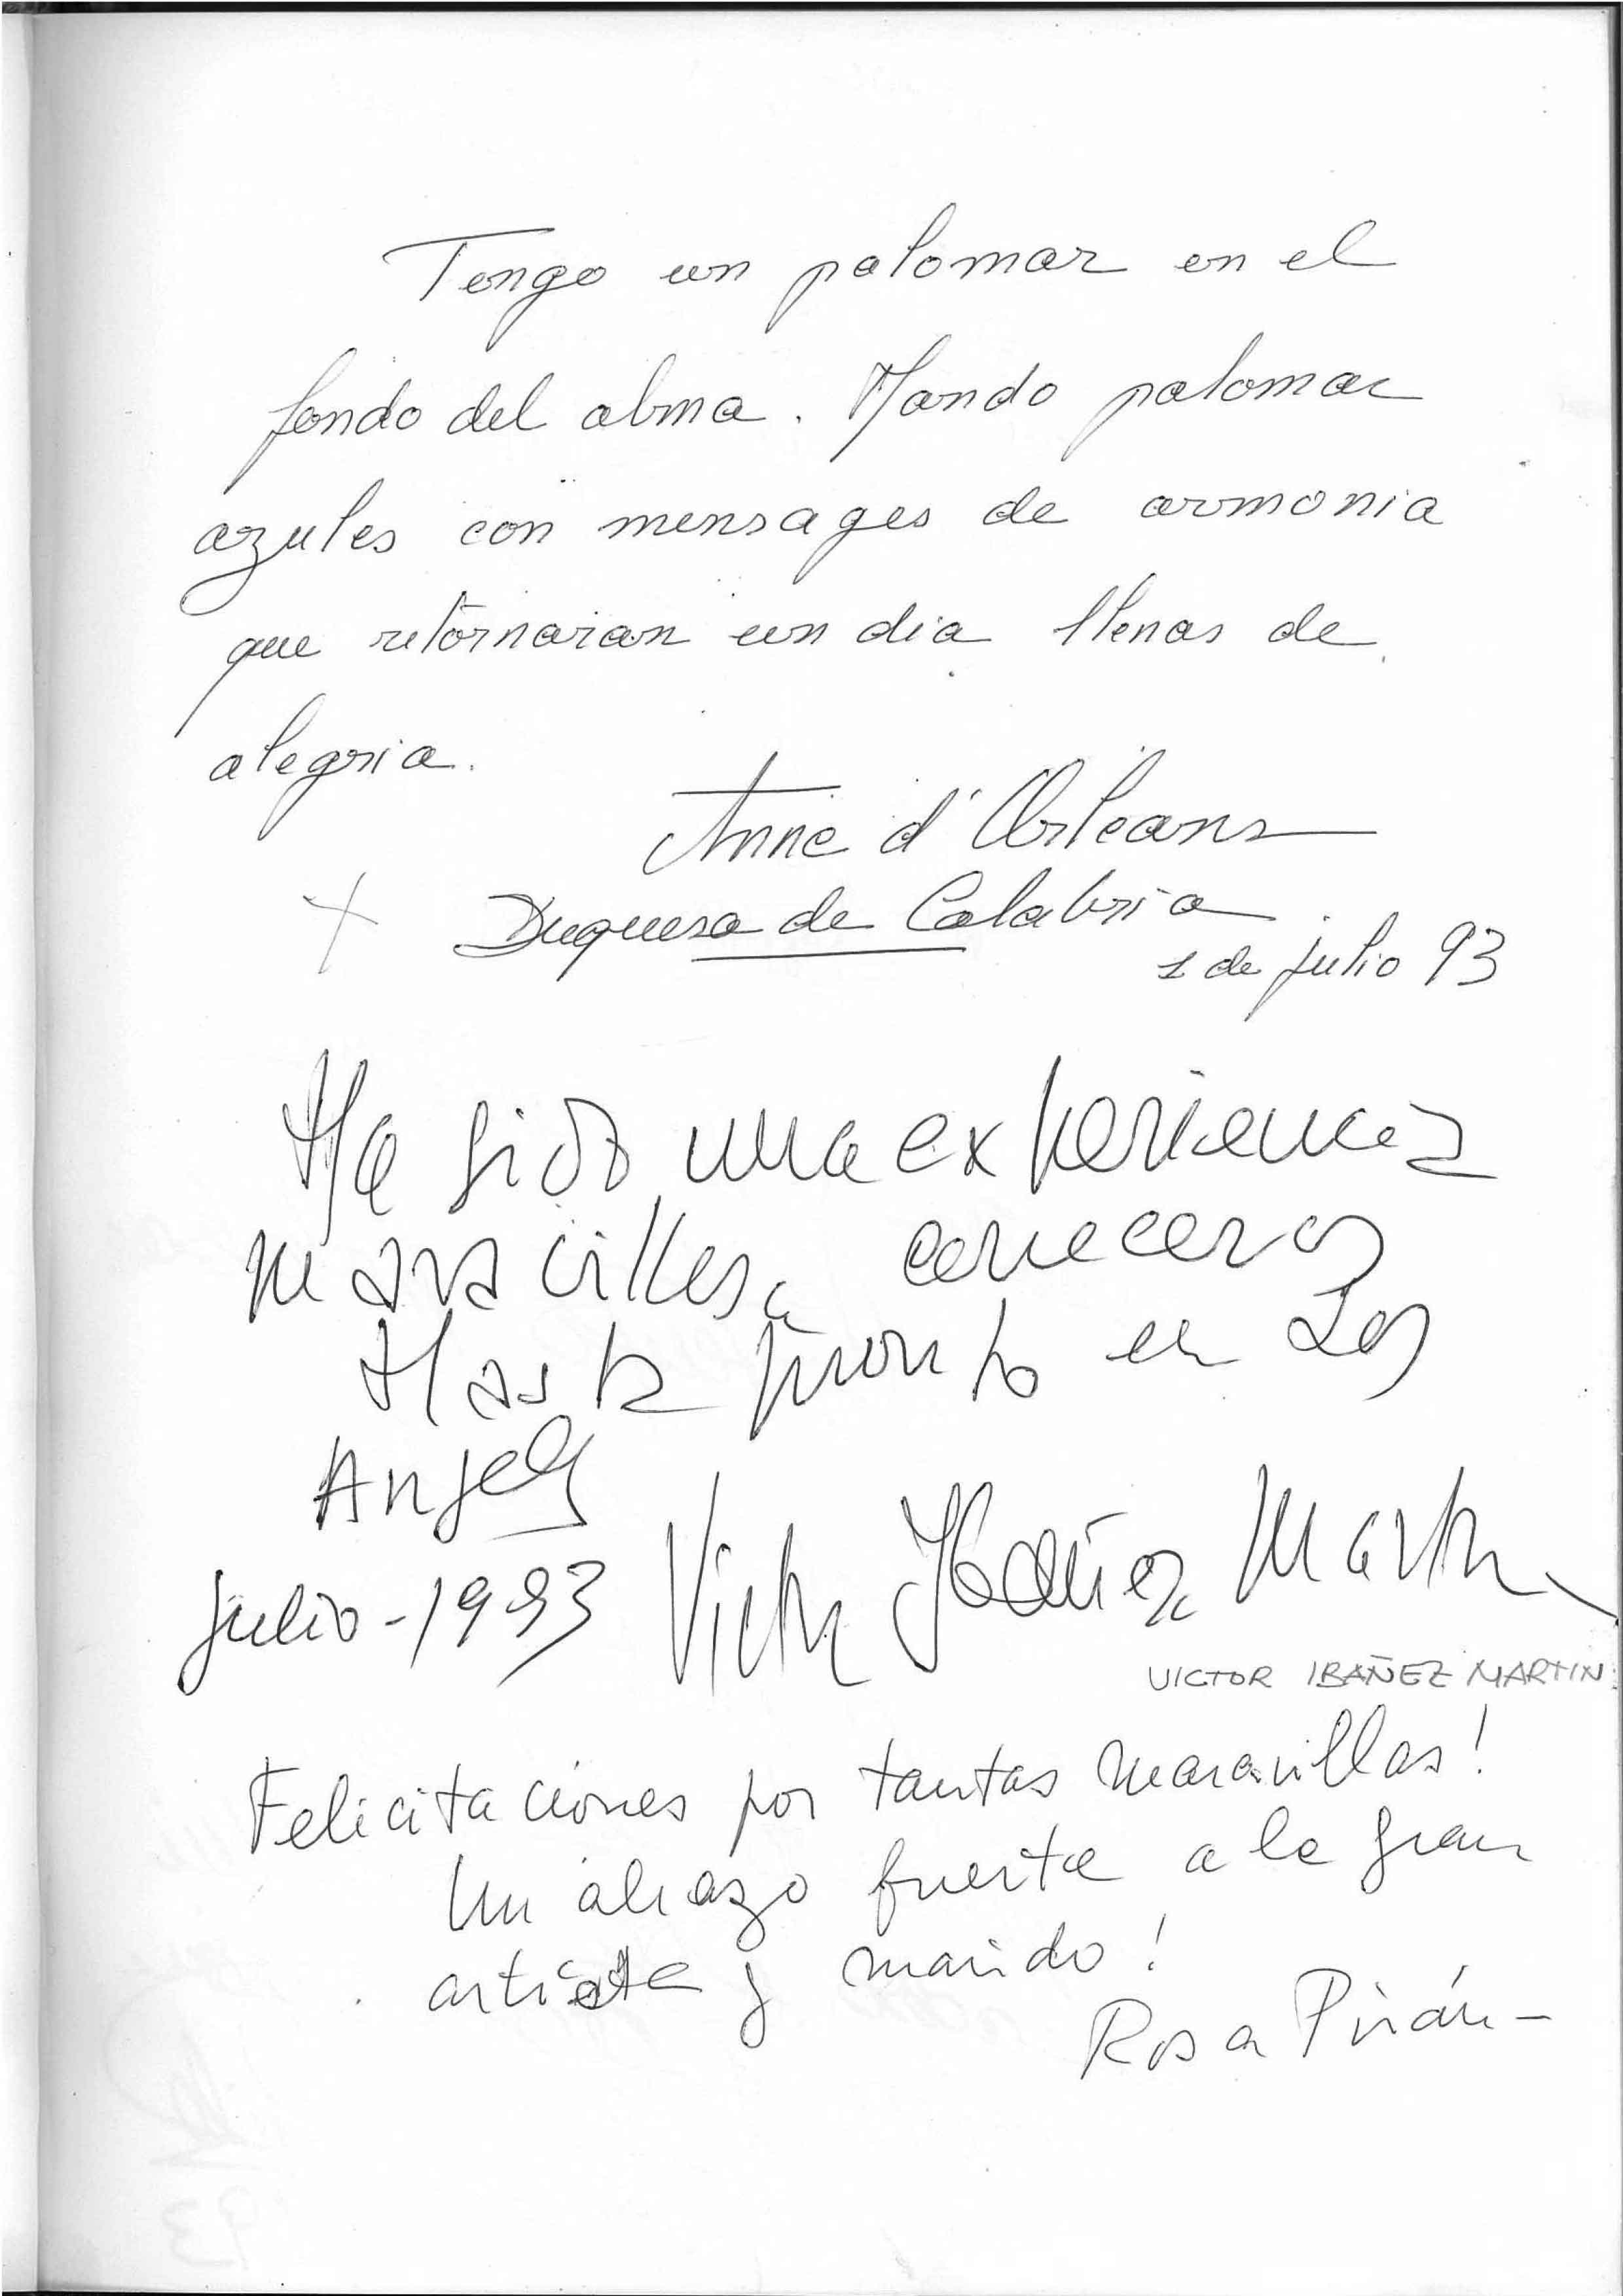 Tengo un palomar en el
fondo del alma. Mando palomas
azules con mensages de armonia
que retornaran un dia llenas de
alegria.
Anne d'Orleans
Duquesa de Calabria.
1 de julio 93
Ha sido una experiencia
maravillosa conoceros
Hasta pronto en Los
Angeles
julio-1993 Victor Ibañez Martin
VICTOR IBAÑEZ MARTIN
Felicitaciones por tantas maravillas!
Un abrazo fuerte a la gran
artista y marido!
Rosa Pirán-